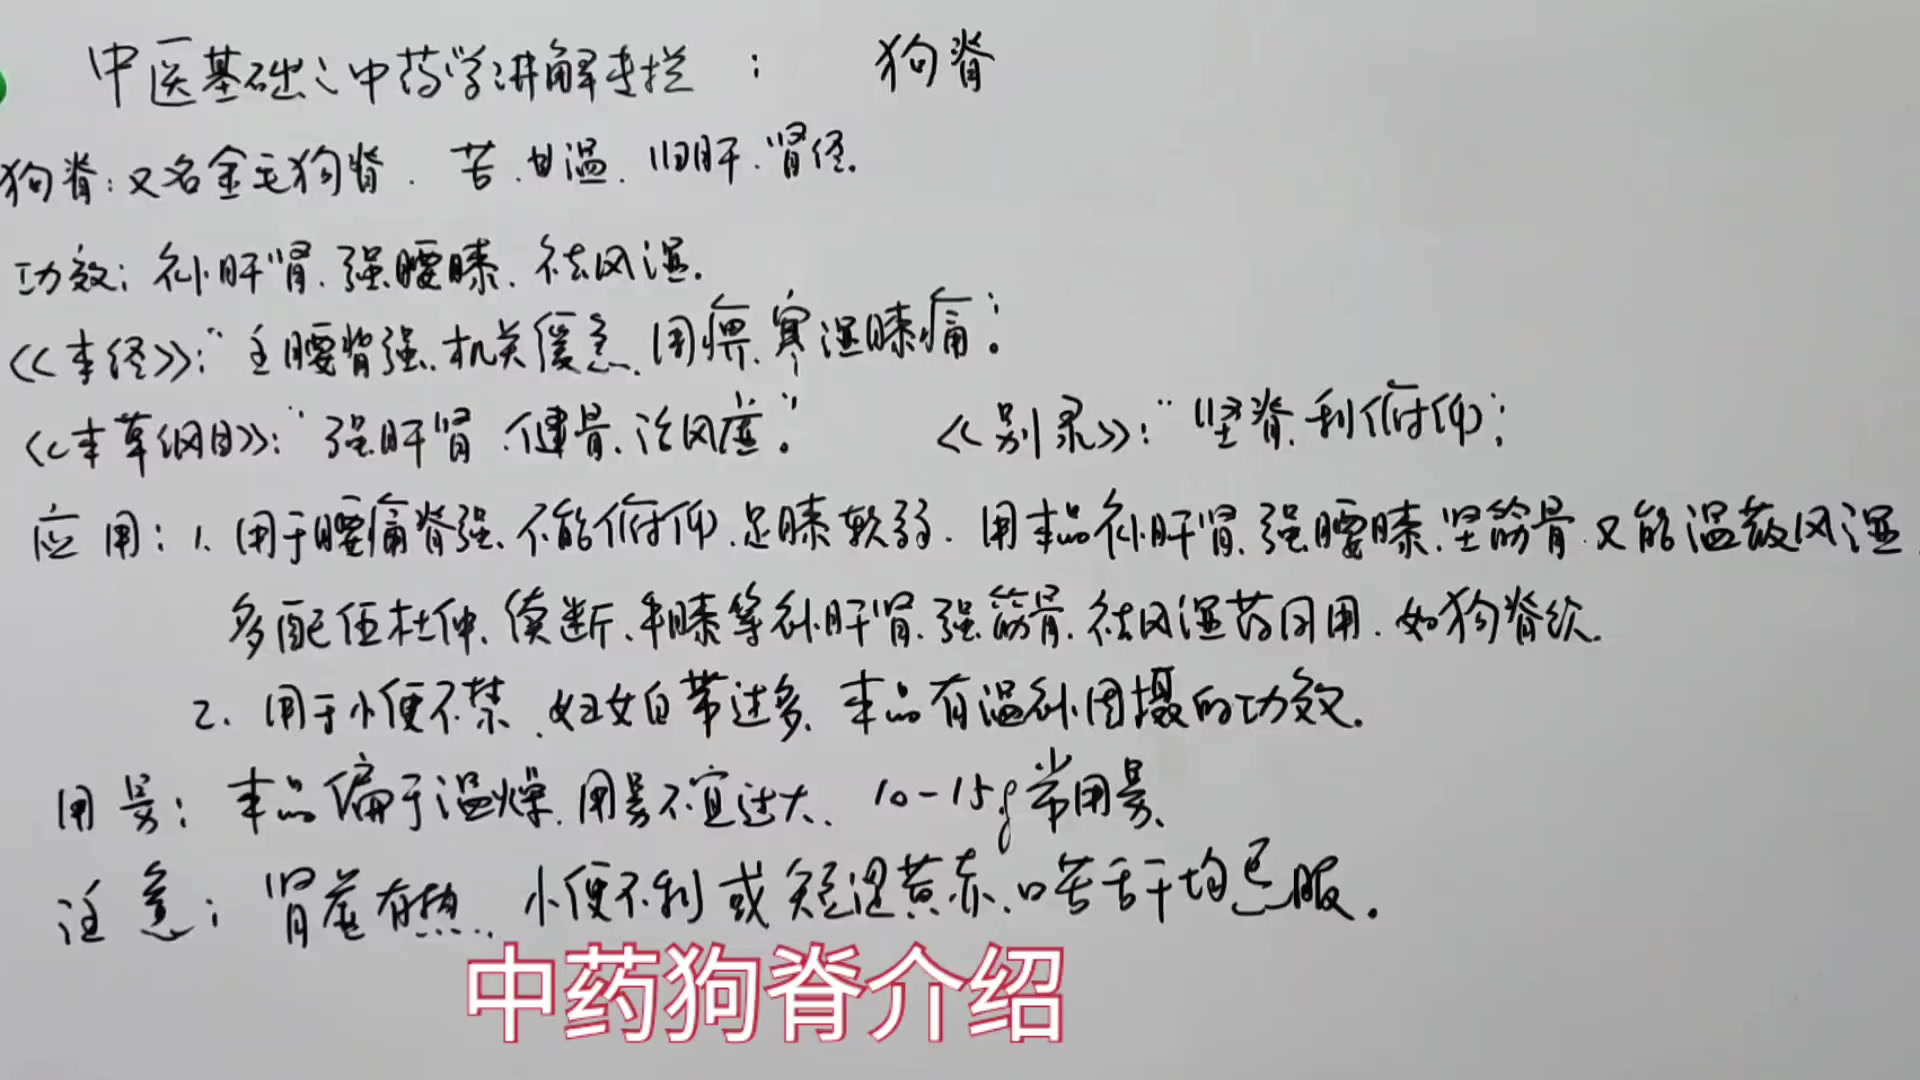 中医基础之中药学讲解专拦： 狗脊
狗脊：又名金毛狗脊．苦．甘温．归肝．肾经．
功效：补肝肾．强腰膝．祛风湿．
《本经》："主腰背强．机关缓急．周痹．寒湿膝痛"。
《本草纲目》："强肝肾．健骨．治风虚"。 《别录》："坚脊．利俯仰"；
应用：1. 用于腰痛脊强．不能俯仰．足膝软弱．用本品补肝肾．强腰膝．坚筋骨．又能温散风湿．
多配伍杜仲．续断．牛膝等补肝肾．强筋骨．祛风湿药同用．如狗脊饮．
2. 用于小便不禁．妇女白带过多．本品有温补固摄的功效．
用量：本品偏于温燥．用量不宜过大．10-15g常用量．
注意：肾虚有热．小便不利或短涩黄赤．口苦舌干均忌服．
中药狗脊介绍